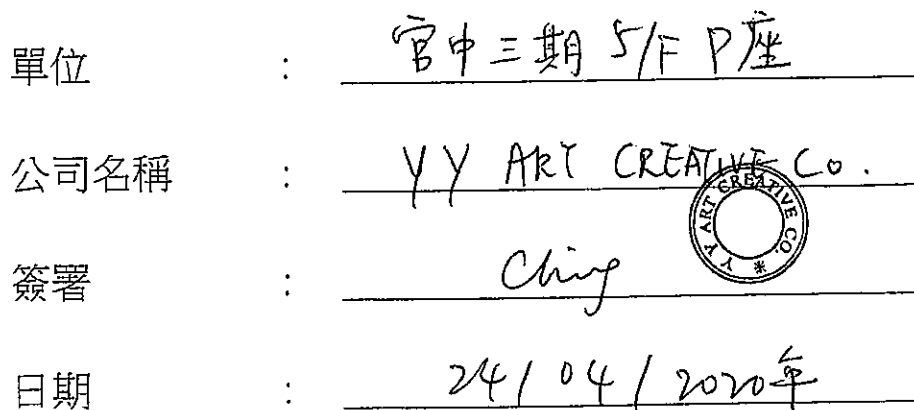 單位 : 官中三期 5/F P座
公司名稱 : YY ART CREATIVE Co.
Y Y ART CREATIVE CO. *
簽署 : Ching
日期 : 24/04/2020年